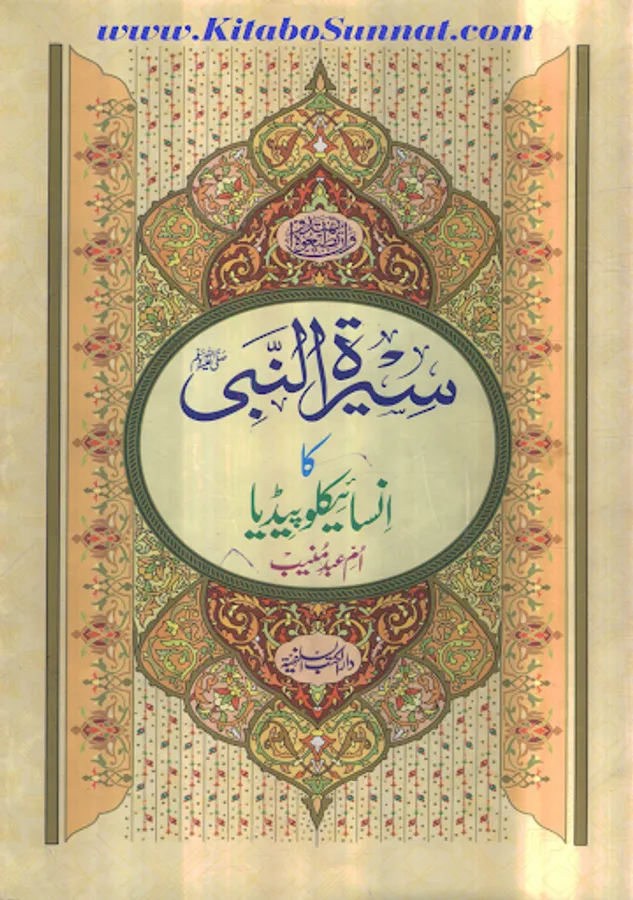 www.KitaboSunnat.com
وَإِن تُطِيعُوهُ تَهْتَدُوا
سِيرة النَّبِی ﷺ
کا
انسائیکلوپیڈیا
اُمِّ عبدِ مُنیب
دارالکتب السلفیۃ